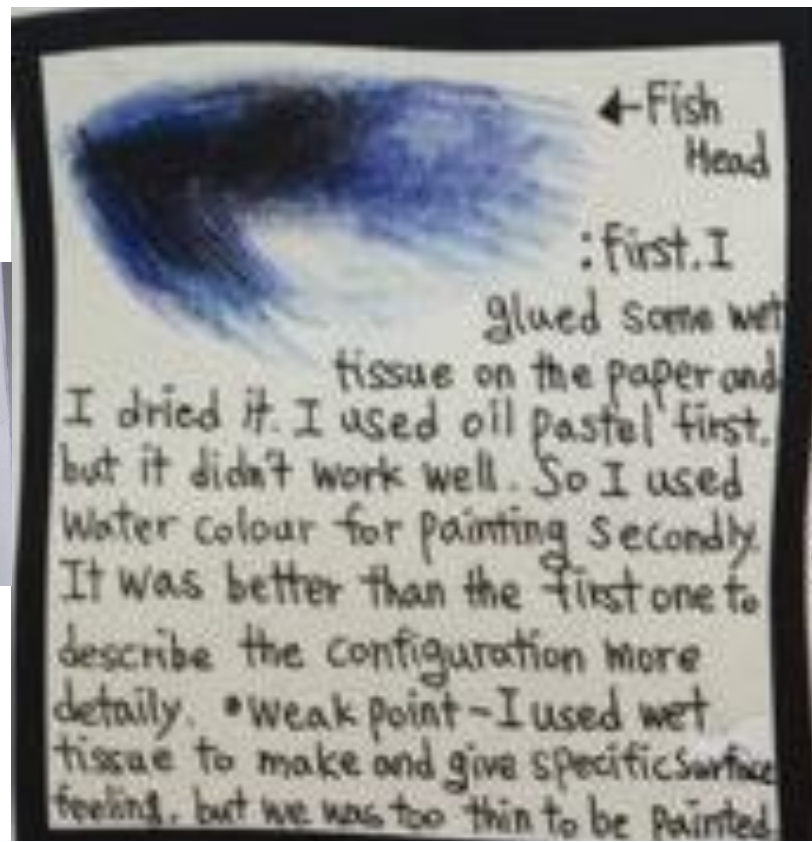 ←Fish
Head
: first. I
glued some wet
tissue on the paper and
I dried it. I used oil pastel first.
but it didn't work well. So I used
Water colour for painting secondly.
It was better than the first one to
describe the configuration more
detaily. •Weak point-I used wet
tissue to make and give specific surface
feeling. but we was too thin to be painted